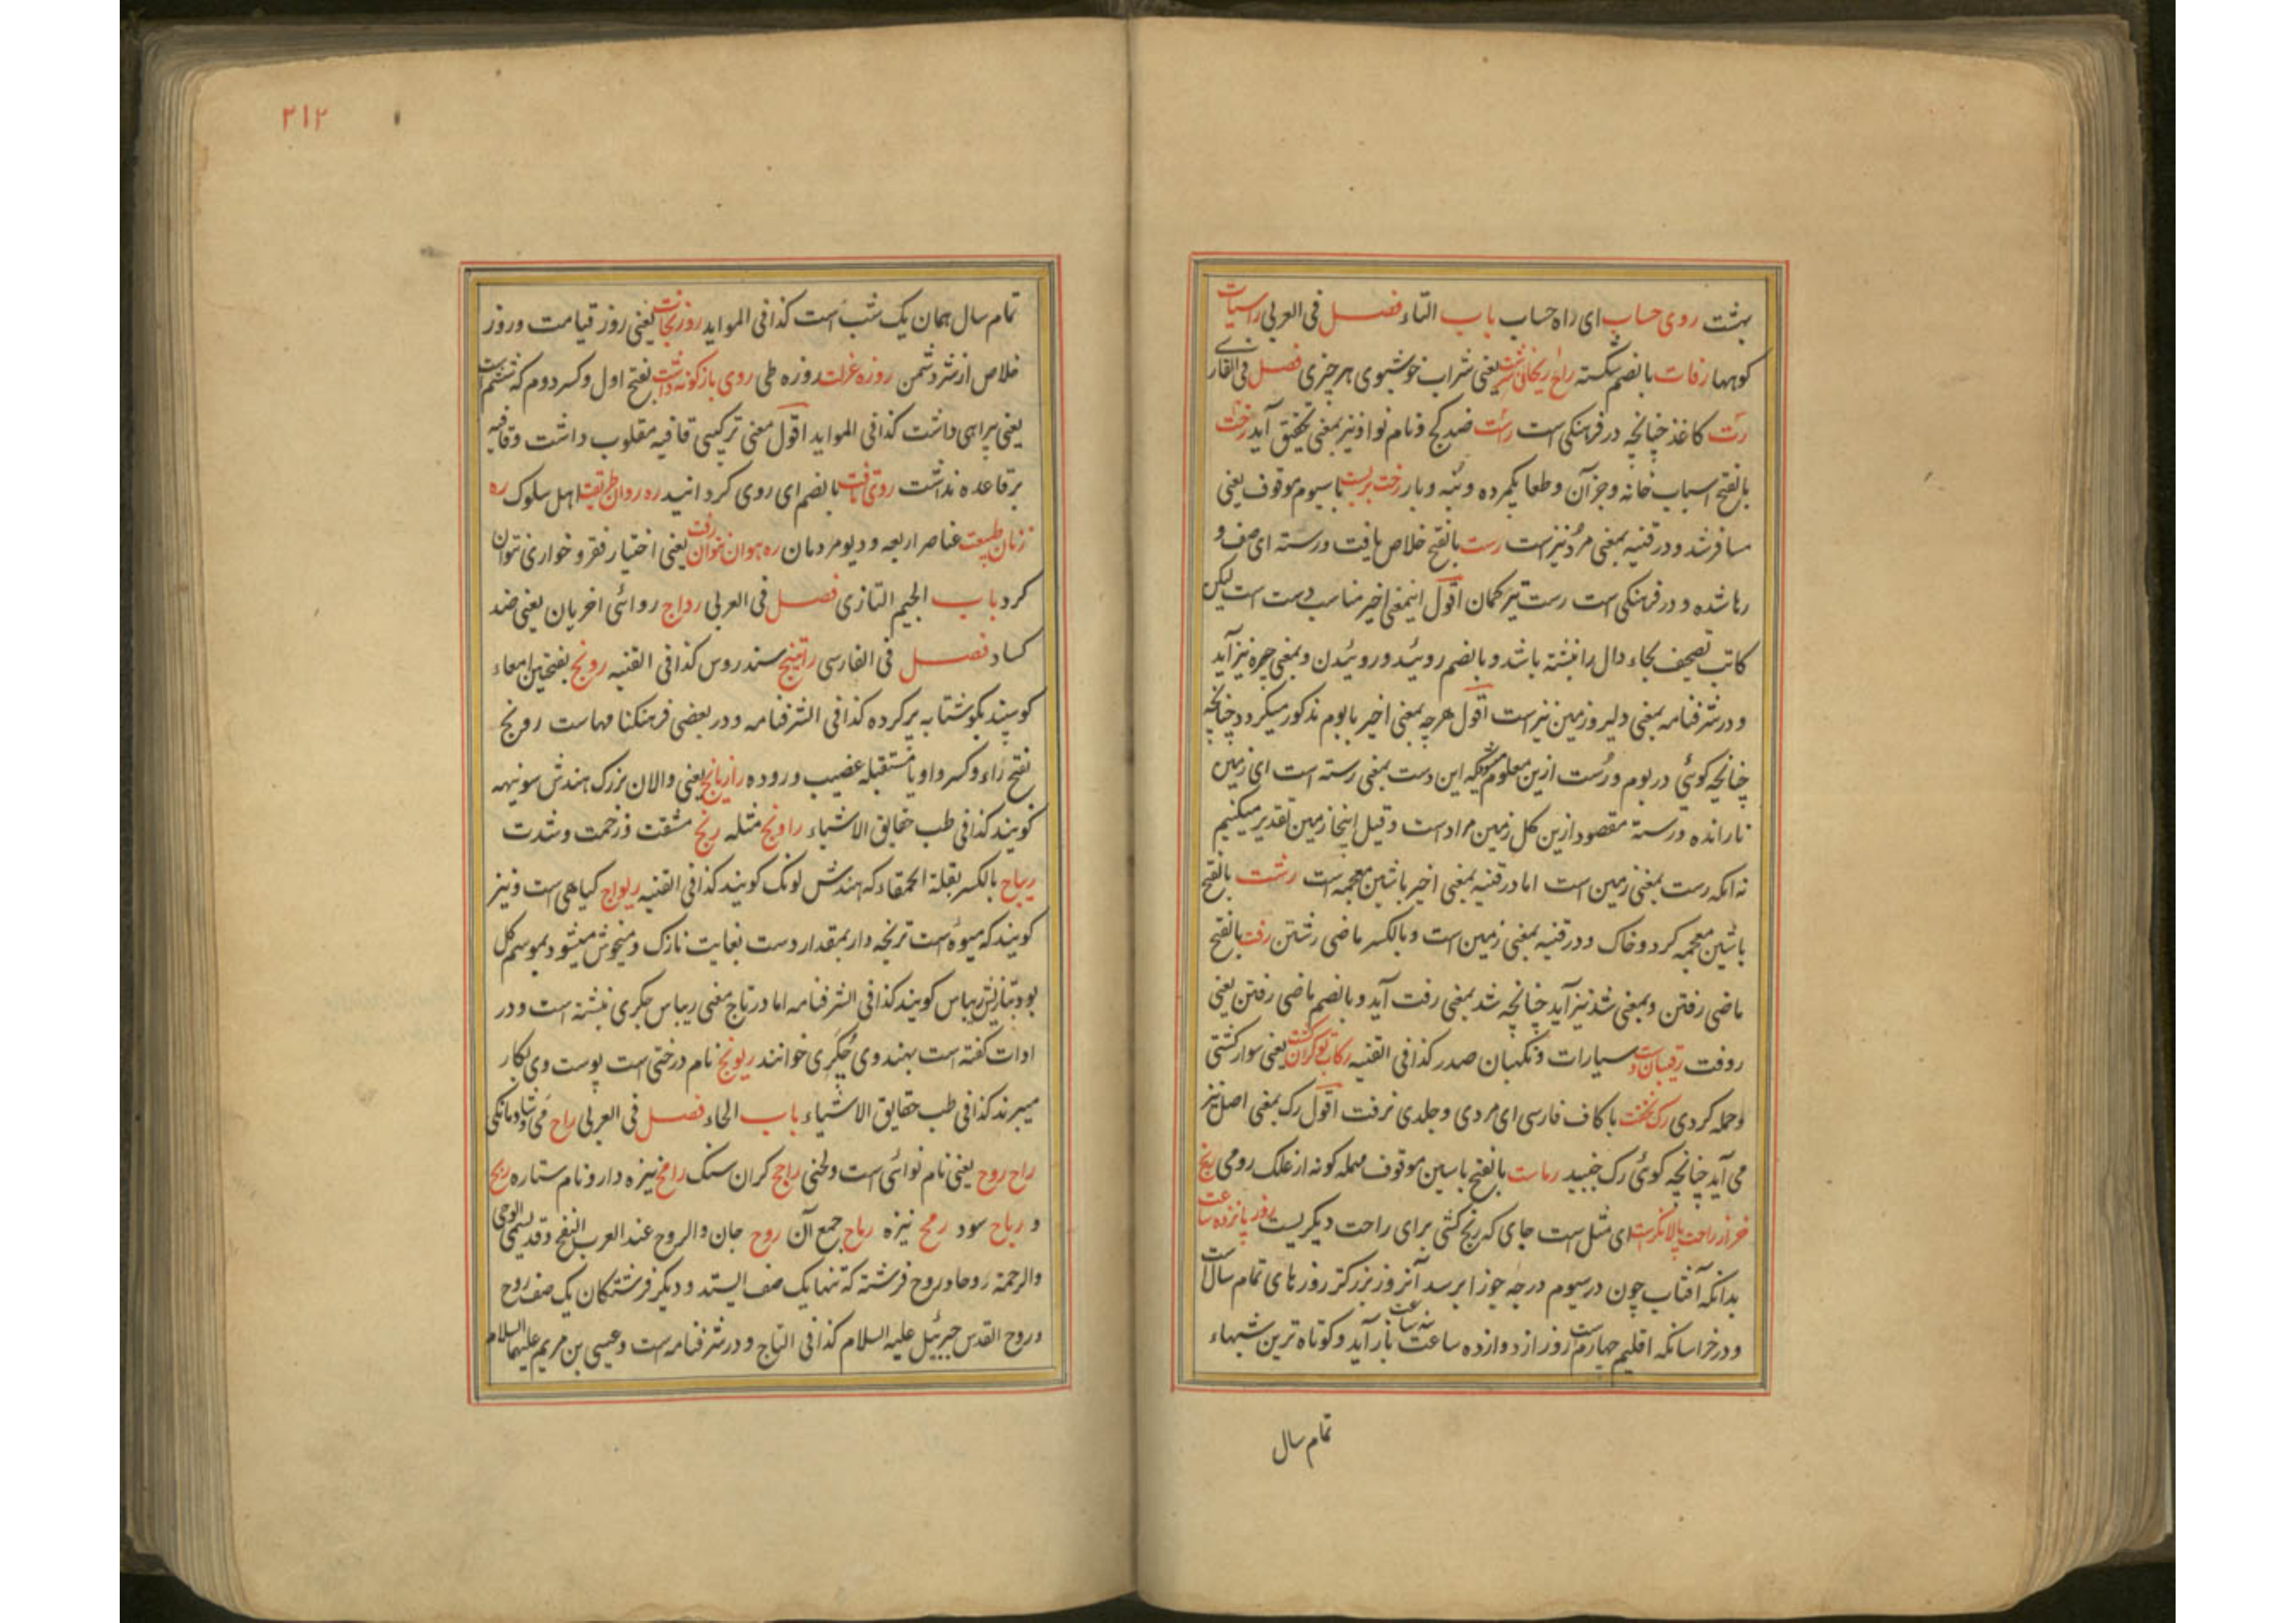 بهشت روی حساب ای راه حساب باب التاء فصل فی العربی راسیات
کوهها رفات بالضم شکسته راح ریحانی سرشت یعنی شراب خوشبوی هر چیزی فصل فی الفارسی
رت کاغذ چنانچه در فرهنکی است راست ضد کج و نام نوا و نیز بمعنی تحقیق آید رخت
بالفتح اسباب خانه و جز آن و طعام یکمرده و بنه و بار رخت بربست با سیوم موقوف یعنی
مسافر شد و در قنیه بمعنی مرد نیز است رست بالفتح خلاص یافت و رسته ای صف و
رها شده و در فرهنکی است رست تیر کمان اقول اینمعنی اخیر مناسب دست است لیکن
کاتب تصحیف بجاء دال را نبشته باشد و بالضم روئید و روئیدن و بمعنی چیره نیز آید
و در شرفنامه بمعنی دلیر و زمین نیز است اقول هرچه بمعنی اخیر با بوم مذکور میکردد چنانچه
چنانچه کوئی در بوم و رست ازین معلوم میشود که این رست بمعنی رسته است ای زمین
نارانده و رسته مقصود ازین کل زمین مراد است و قیل اینجا زمین تقدیر میکنیم
نه انکه رست بمعنی زمین است اما در قنیه بمعنی اخیر با شین معجمه است رشت بالفتح
باشین معجمه کرد و خاک و در قنیه بمعنی زمین است و بالکسر ماضی رشتن رفت بالفتح
ماضی رفتن و بمعنی شد نیز آید چنانچه شد بمعنی رفت آید و بالضم ماضی رفتن یعنی
روفت رقیبان دست سیارات و نکهبان صدر کذا فی القنیه رکاب تو کران کشت یعنی سوار کشتی
و حمله کردی رک نخفت با کاف فارسی ای مردی و جلدی نرفت اقول رک بمعنی اصل نیز
می آید چنانچه کوئی رک جنبید رماست بالفتح با سین موقوف مهمله کونه از علک رومی رنج
خر از راحت پالانکرست ای مثل است جای که رنج کشی برای راحت دیکریست روز پانزده ساعت
بدانکه آفتاب چون در سیوم درجه جوزا برسد آنروز بزرکتر روزهای تمام سال است
و در خراسان که اقلیم چهارم است روز از دوازده ساعت بازآید و کوتاه ترین شبهاء
تمام سال
۲۱۲
تمام سال همان یک شب است کذا فی الموایید روز نجات یعنی روز قیامت و روز
خلاص از شر دشمن روزه عزلت روزه طی روی بازکونه داشت بفتح اول و کسر دوم که ششم است
یعنی بیراهی داشت کذا فی الموایید اقول معنی ترکیبی قافیه مقلوب داشت و قافیه
بر قاعده نداشت روی تافت بالضم ای روی کردانید ره روان طریقت اهل سلوک ره
زنان طبیعت عناصر اربعه و دیو مردمان ره هوان توان رفت یعنی اختیار فقر و خواری توان
کرد باب الجیم التازی فصل فی العربی رواج روائی اخریان یعنی ضد
کساد فصل فی الفارسی راتینج سندروس کذا فی القنیه رونج بفتحتین امعاء
کوسپند بکوشتابه پر کرده کذا فی الشرفنامه و در بعضی فرهنکنامهاست رونج
بفتح راء و کسر واو با مستقبله عصیب و روده رازیانج یعنی والان بزرک هندش سونپهه
کویند کذا فی طب حقایق الاشیاء راونج مثله رنج مشقت و زحمت و شدت
ریاح بالکسر بقلة الحمقاء که هندش لونک کویند کذا فی القنیه ریواج کیاهی است و نیز
کویند که میوه است ترنجه دار بمقدار دست بغایت نازک و میخوش میشود بموسم کل
بود بتازیش ریباس کویند کذا فی الشرفنامه اما در تاج معنی ریباس جکری نبشته است و در
ادات کفته است بهندوی جکری خوانند ریونج نام درختی است پوست وی بکار
میبرند کذا فی طب حقایق الاشیاء باب الحاء فصل فی العربی راح می و شادمانکی
راح روح یعنی نام نوائی است و لحنی راجح کران سنک رامح نیزه دار و نام ستاره ربح
و رباح سود رمح نیزه رماح جمع آن روح جان و الروح عند العرب النفخ و قد یسمی الوحی
و الرحمة روحا و روح فرشته که تنها یک صف ایستد و دیکر فرشتکان یک صف روح
و روح القدس جبرئیل علیه السلام کذا فی التاج و در شرفنامه است و عیسی بن مریم علیهما السلام